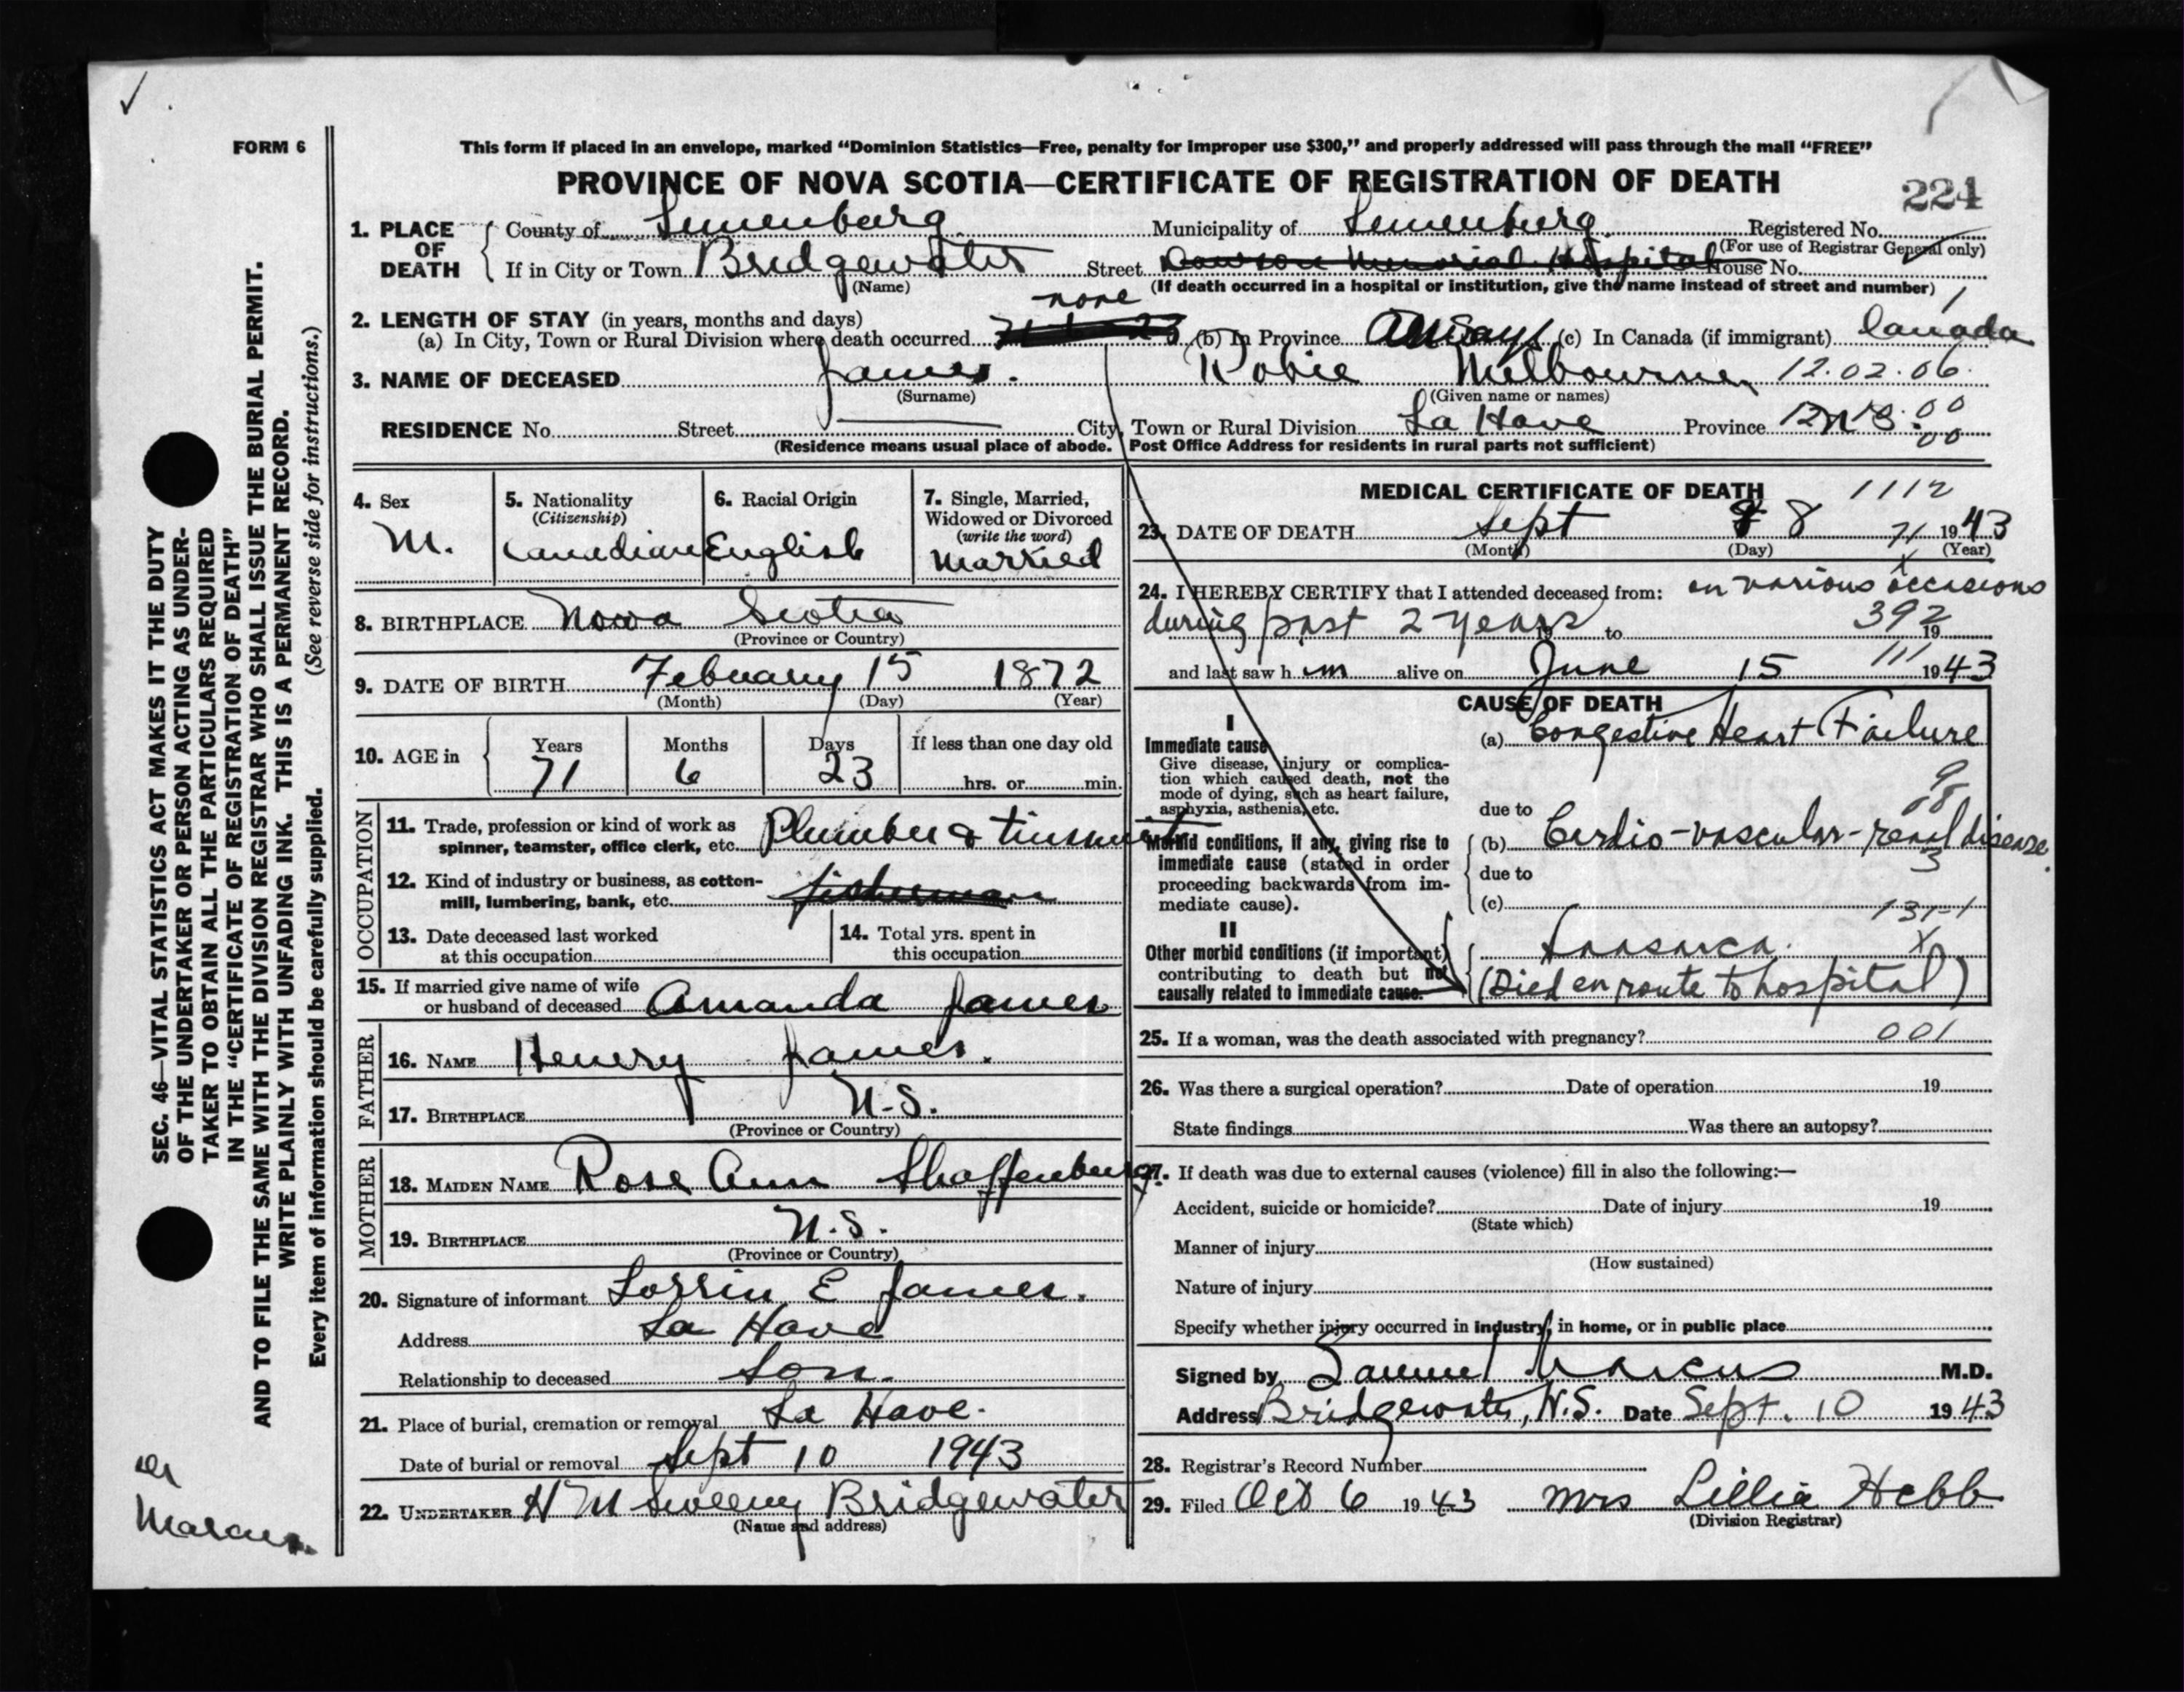 FORM 6
This form if placed in an envelope, marked “Dominion Statistics—Free, penalty for improper use $300,” and properly addressed will pass through the mail “FREE”
PROVINCE OF NOVA SCOTIA—CERTIFICATE OF REGISTRATION OF DEATH
224
1. PLACE OF DEATH
County of Lunenburg Municipality of Lunenburg Registered No.
(For use of Registrar General only)
If in City or Town Bridgewater Street Dawson Memorial Hospital House No.
(Name) (If death occurred in a hospital or institution, give the name instead of street and number)
2. LENGTH OF STAY (in years, months and days)
none
(a) In City, Town or Rural Division where death occurred (b) In Province Always (c) In Canada (if immigrant) Canada
3. NAME OF DECEASED James. Robie Milbourne 12.02.06
(Surname) (Given name or names)
RESIDENCE No. Street City, Town or Rural Division La Have Province N S.
(Residence means usual place of abode. Post Office Address for residents in rural parts not sufficient)
4. Sex
M.
5. Nationality
(Citizenship)
Canadian
6. Racial Origin
English
7. Single, Married,
Widowed or Divorced
(write the word)
Married
8. BIRTHPLACE Nova Scotia
(Province or Country)
9. DATE OF BIRTH February 15 1872
(Month) (Day) (Year)
10. AGE in
Years Months Days If less than one day old
71 6 23 hrs. or min.
OCCUPATION
11. Trade, profession or kind of work as
spinner, teamster, office clerk, etc. Plumber & tinsmith
12. Kind of industry or business, as cotton-
mill, lumbering, bank, etc. fisherman
13. Date deceased last worked
at this occupation
14. Total yrs. spent in
this occupation
15. If married give name of wife
or husband of deceased Amanda James
FATHER
16. NAME Henry James.
17. BIRTHPLACE N.S.
(Province or Country)
MOTHER
18. MAIDEN NAME Rose Ann Shaffenburg.
19. BIRTHPLACE N.S.
(Province or Country)
20. Signature of informant Lorrin E James.
Address La Have
Relationship to deceased Son.
21. Place of burial, cremation or removal La Have.
Date of burial or removal Sept 10 1943
22. UNDERTAKER H M Sweeny Bridgewater
(Name and address)
MEDICAL CERTIFICATE OF DEATH
1112
23. DATE OF DEATH Sept 8 71 1943
(Month) (Day) (Year)
24. I HEREBY CERTIFY that I attended deceased from: on various occasions
during past 2 years 19 to 392 19
and last saw h im alive on June 15 111 1943
CAUSE OF DEATH
I
Immediate cause
Give disease, injury or complica-
tion which caused death, not the
mode of dying, such as heart failure,
asphyxia, asthenia, etc.
(a) Congestive Heart Failure
due to
Morbid conditions, if any, giving rise to
immediate cause (stated in order
proceeding backwards from im-
mediate cause).
(b) Cardio-vascular-renal disease.
due to
3
(c)
131-1
II
Other morbid conditions (if important)
contributing to death but not
causally related to immediate cause.
Anasarca.
(Died en route to hospital)
25. If a woman, was the death associated with pregnancy? 001
26. Was there a surgical operation? Date of operation 19
State findings Was there an autopsy?
27. If death was due to external causes (violence) fill in also the following:—
Accident, suicide or homicide? Date of injury 19
(State which)
Manner of injury
(How sustained)
Nature of injury
Specify whether injury occurred in industry, in home, or in public place
Signed by Samuel Marcus M.D.
Address Bridgewater, N.S. Date Sept. 10 1943
28. Registrar's Record Number
29. Filed Oct 6 1943 Mrs Lillia Hebb
(Division Registrar)
SEC. 46—VITAL STATISTICS ACT MAKES IT THE DUTY
OF THE UNDERTAKER OR PERSON ACTING AS UNDER-
TAKER TO OBTAIN ALL THE PARTICULARS REQUIRED
IN THE “CERTIFICATE OF REGISTRATION OF DEATH”
AND TO FILE THE SAME WITH THE DIVISION REGISTRAR WHO SHALL ISSUE THE BURIAL PERMIT.
WRITE PLAINLY WITH UNFADING INK. THIS IS A PERMANENT RECORD.
Every item of information should be carefully supplied. (See reverse side for instructions.)
Dr
Marcus.